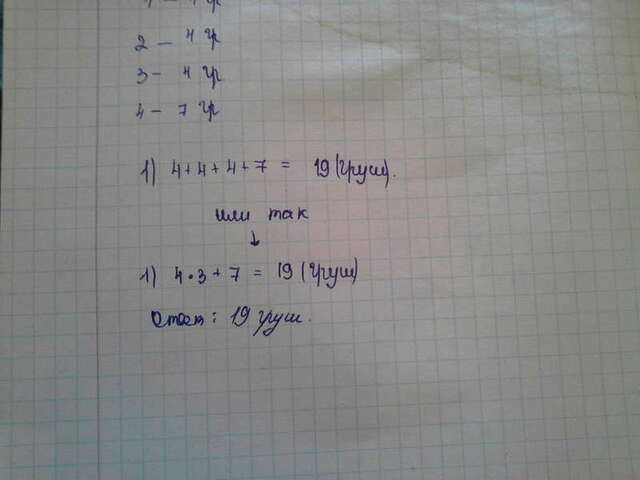 2 - 4 гр
3 - 4 гр
4 - 7 гр
1) 4+4+4+7 = 19 (груш).
или так
↓
1) 4•3+7 = 19 (груш)
Ответ: 19 груш.